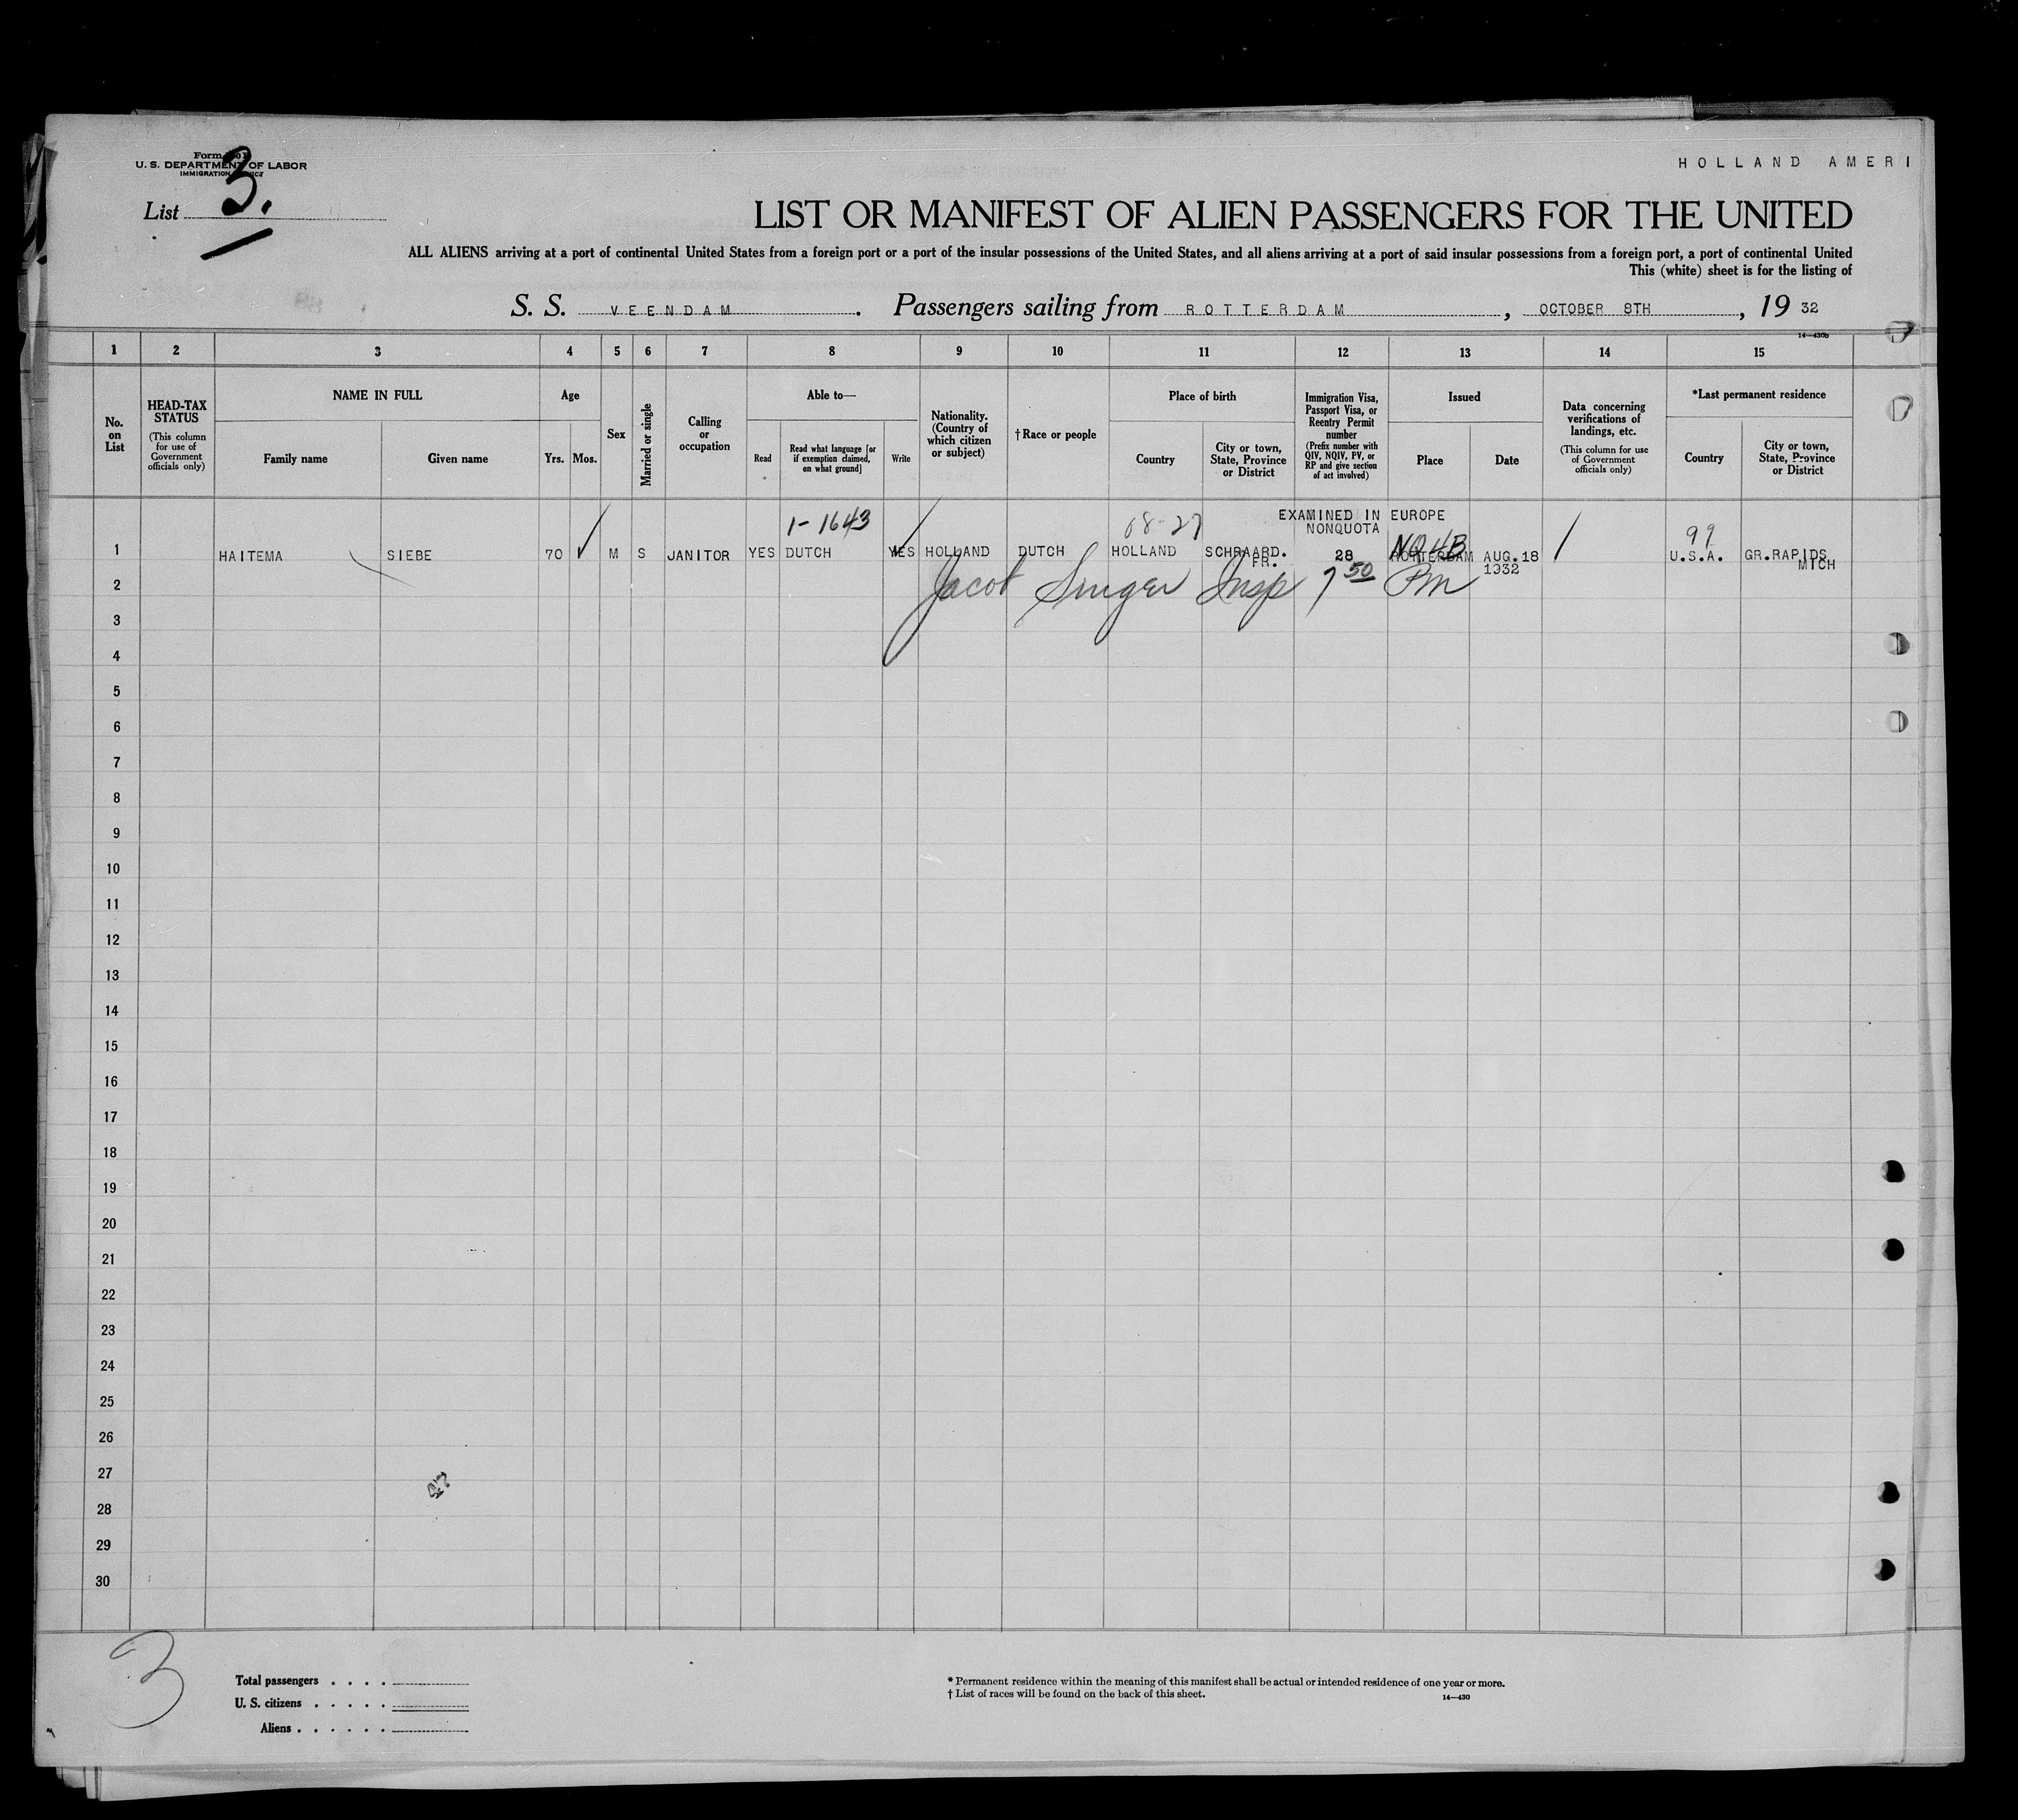 Form
U. S. DEPARTMENT OF LABOR
IMMIGRATION
HOLLAND AMERI
List 3.
LIST OR MANIFEST OF ALIEN PASSENGERS FOR THE UNITED
ALL ALIENS arriving at a port of continental United States from a foreign port or a port of the insular possessions of the United States, and all aliens arriving at a port of said insular possessions from a foreign port, a port of continental United
This (white) sheet is for the listing of
S. S. VEENDAM. Passengers sailing from ROTTERDAM, OCTOBER 8TH, 19 32
14—430b
1 2 3 4 5 6 7 8 9 10 11 12 13 14 15
No. on List
HEAD-TAX STATUS
(This column for use of Government officials only)
NAME IN FULL
Family name Given name
Age
Yrs. Mos.
Sex
Married or single
Calling or occupation
Able to—
Read
Read what language [or if exemption claimed, on what ground]
Write
Nationality. (Country of which citizen or subject)
†Race or people
Place of birth
Country
City or town, State, Province or District
Immigration Visa, Passport Visa, or Reentry Permit number
(Prefix number with QIV, NQIV, PV, or RP and give section of act involved)
Issued
Place Date
Data concerning verifications of landings, etc.
(This column for use of Government officials only)
*Last permanent residence
Country
City or town, State, Province or District
EXAMINED IN EUROPE
1-1643 08-27 NONQUOTA 99
NQ 4B
1 HAITEMA SIEBE 70 M S JANITOR YES DUTCH YES HOLLAND DUTCH HOLLAND SCHRAARD. FR. 28 ROTTERDAM AUG.18 1932 U.S.A. GR.RAPIDS MICH
Jacob Singer Insp 7 50 Pm
2
3
4
5
6
7
8
9
10
11
12
13
14
15
16
17
18
19
20
21
22
23
24
25
26
27
28
29
30
3
Total passengers . . . .
U. S. citizens . . . . .
Aliens . . . . . .
* Permanent residence within the meaning of this manifest shall be actual or intended residence of one year or more.
† List of races will be found on the back of this sheet.
14—430